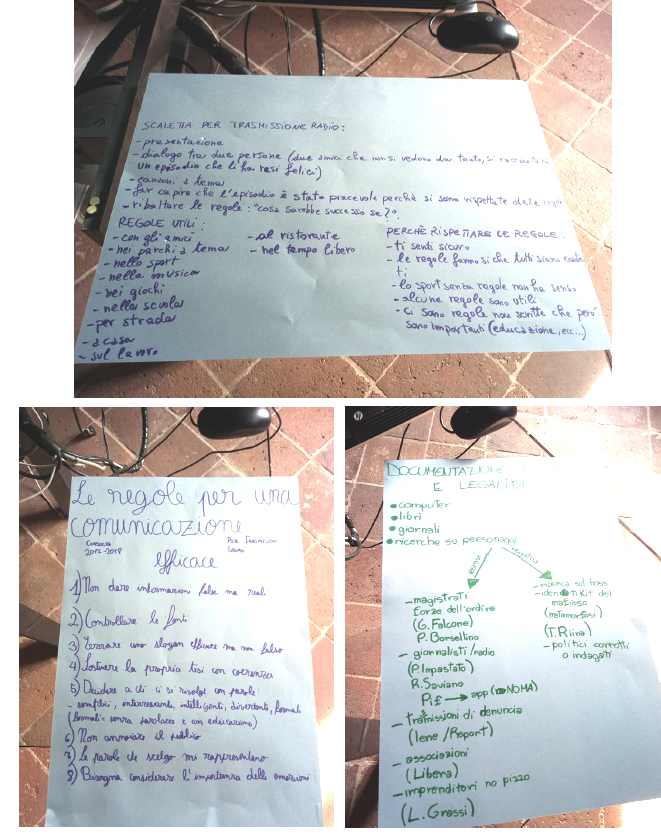 SCALETTA PER TRASMISSIONE RADIO:
- presentazione
- dialogo tra due persone (due amici che non si vedono da tanto, si raccontano
un episodio che li ha resi felici)
- canzoni a tema
- far capire che l'episodio è stato piacevole perchè si sono rispettate delle regole
- ribaltare le regole: "cosa sarebbe successo se?".
REGOLE UTILI:
- con gli amici
- nei parchi a tema
- nello sport
- nella musica
- nei giochi
- nella scuola
- per strada
- a casa
- sul lavoro
- al ristorante
- nel tempo libero
PERCHÈ RISPETTARE LE REGOLE:
- ti senti sicuro
- le regole fanno si che tutti siano
ti
- lo sport senza regole non ha senso
- alcune regole sono utili
- ci sono regole non scritte che però
sono importanti (educazione, ecc...)
Le regole per una
comunicazione
efficace
2017-2018
1) Non dare informazioni false ma reali
2) Controllare le fonti
3) Trovare uno slogan efficace ma non falso
4) Sostenere la propria tesi con coerenza
5) Decidere a chi ci si rivolge con parole:
- semplici, interessante, intelligenti, divertente, formali
(formali = senza parolacce e con educazione)
6) Non annoiare il pubblico
7) Le parole che scelgo mi rappresentano
8) Bisogna considerare l'importanza delle emozioni
DOCUMENTAZIONE
E LEGALITÀ
• computer
• libri
• giornali
• ricerche su personaggi
positivi
negativi
- magistrati
forze dell'ordine
(G. Falcone)
P. Borsellino
- giornalisti/radio
(P. Impastato)
R. Saviano
Pif → app (NOMA)
- trasmissioni di denuncia
(Iene/Report)
- associazioni
(Libera)
- imprenditori no pizzo
(L. Grassi)
- ricerca sul boss
- identikit del
mafioso
(metamorfosi)
(T. Riina)
- politici corrotti
o indagati